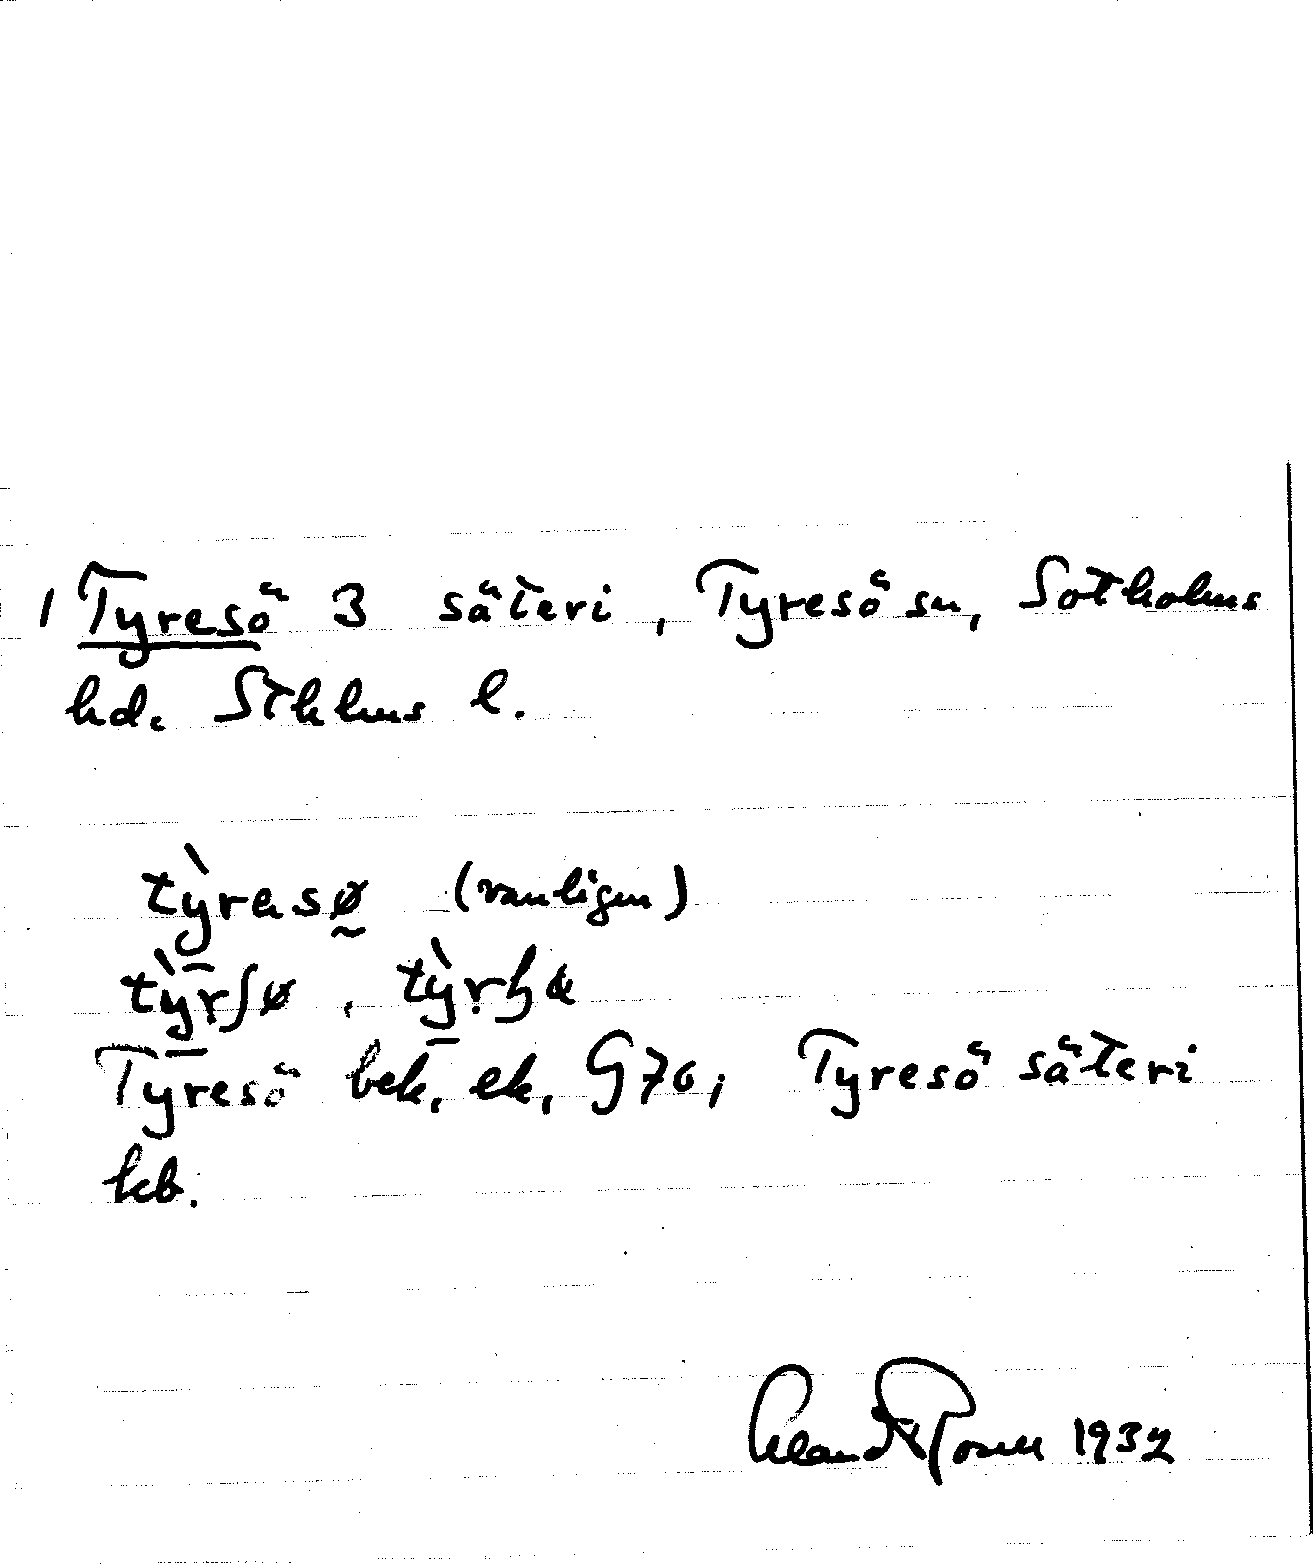 1 Tyresö 3 säteri, Tyresö sn, Sotholms
hd. Sthlms l.
tỳresø̰ (vanligen)
tȳ̀rʃø,
Tȳresö bek. ek. G 76; Tyresö säteri
kb.
1932